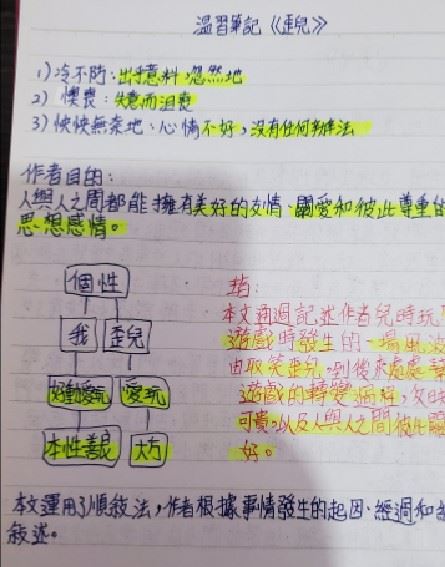 溫習筆記《歪兒》
1) 冷不防：出乎意料 忽然地
2) 懊喪：失意而沮喪
3) 怏怏無奈地：心情不好，沒有任何辦法
作者目的：
人與人之間都能擁有美好的友情、關愛和彼此尊重的
思想感情。
個性
我 歪兒
好動愛玩 愛玩
本性善良 大方
本文通過記述作者兒時玩
遊戲時發生的一場風波
由取笑歪兒，到後來處處
遊戲的轉變過程，
可貴，以及人與人之間彼此
好。
本文運用了順敘法，作者根據事情發生的起因、經過和結
敘述。